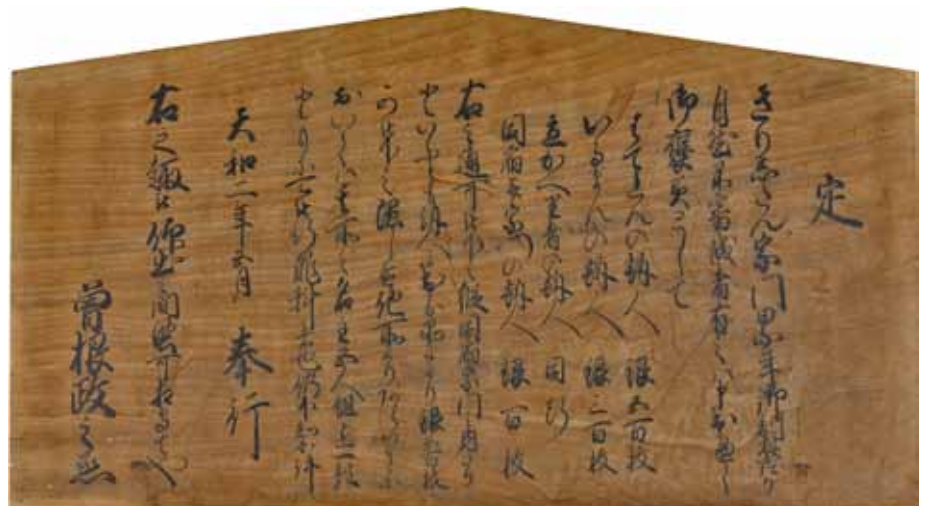 定
きりしたん宗門累年御制禁たり
自然不審成者有之ハ申出へし
御褒美として
はてれんの訴人 銀五百枚
いるまんの訴人 銀三百枚
立かへり者の訴人 同断
同宿宗門の訴人 銀百枚
右之通可被下之縦同宿宗門之内たり
といふとも訴人に出る品により銀五百枚
可被下之隠し置他所よりあらはるゝに
おいてハ其所之名主五人組迄一類
ともに可被行罪科者也仍下知如件
天和二年五月 奉行
右之趣被仰出之間堅可相守者也
曽根政之